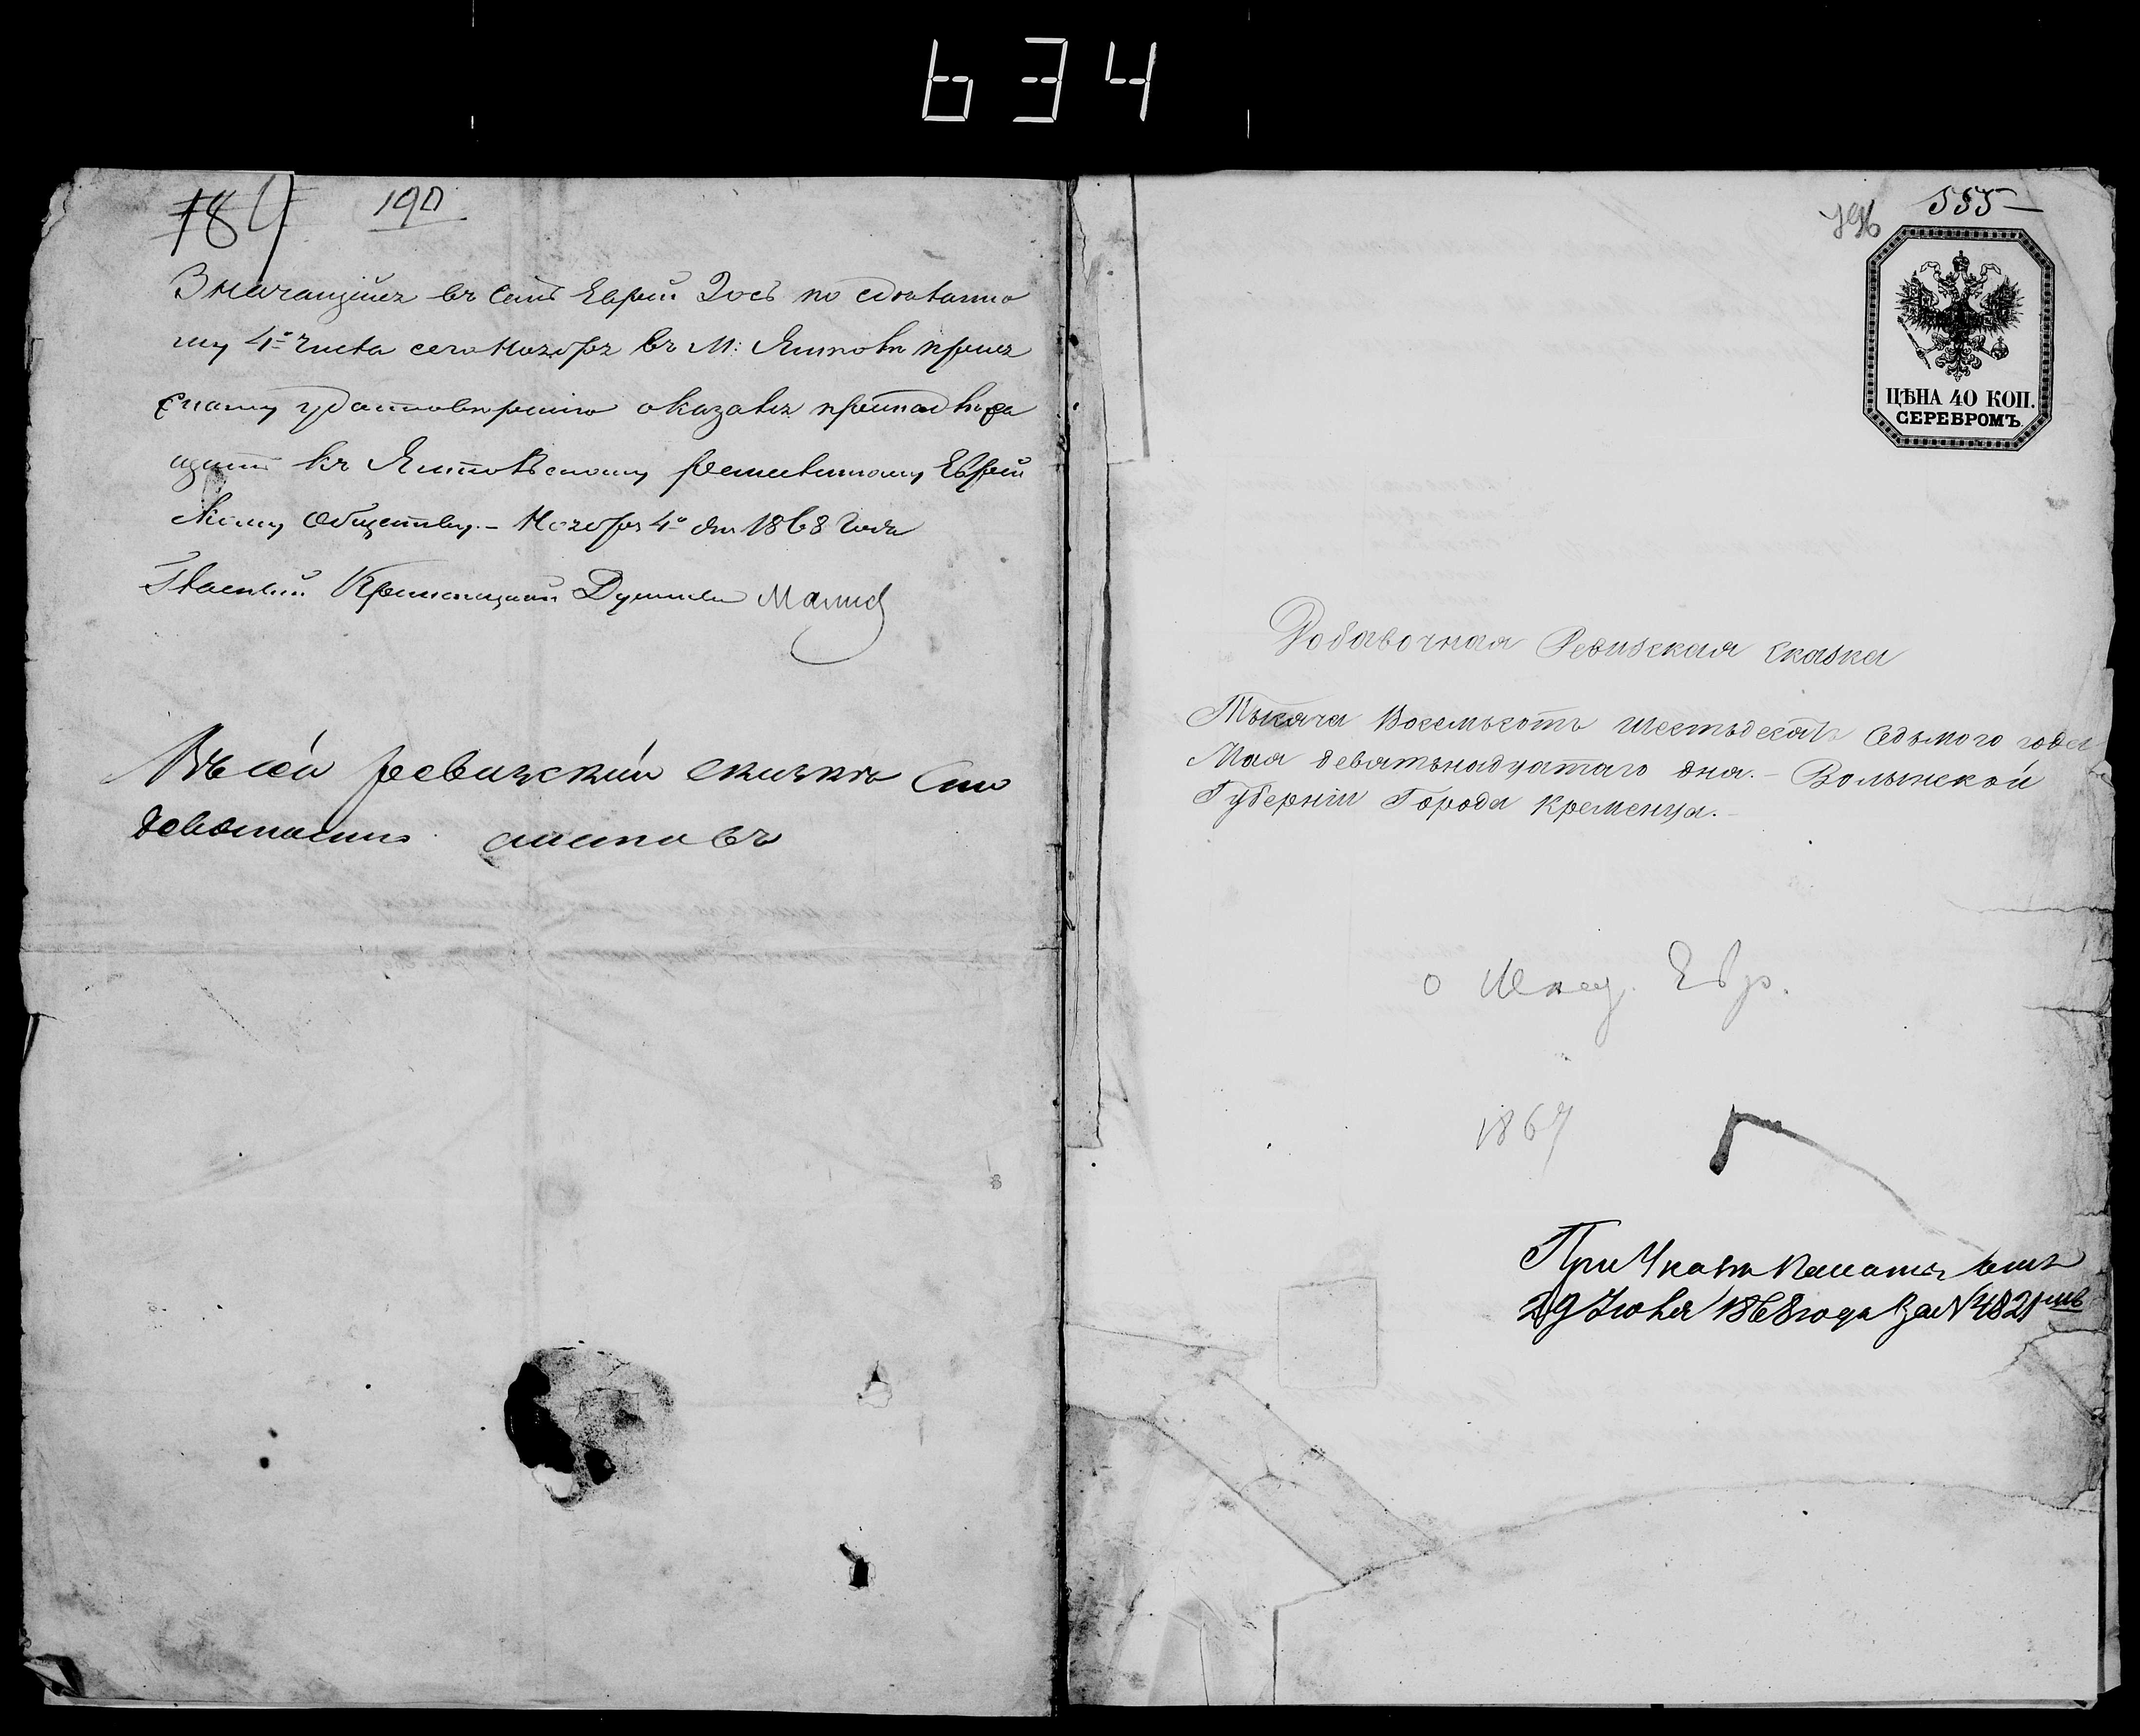 634
184 190
Значащійся въ сей Еврей Іось по сдѣланно
му 4го числа сего Ноября въ М: Ямполѣ
удостовѣренію оказался
къ Ямпольскому Еврей
скому Обществу.- Ноября 4го дня 1868 года
Гласный Кременецкой Думы
Въ сей ревизской сказкѣ Сто
девяносто листовъ
555
ЦѢНА 40 КОП.
СЕРЕБРОМЪ.
Добавочная Ревизская Сказка
Тысяча Восемьсотъ шестьдесятъ седьмого года
Мая девятьнадцатаго дня.- Волынской
Губерніи Города Кременца.-
о Мѣщ. Евр.
1867
При Указѣ Палаты отъ
29 Іюля 1868 года за N 4821мъ